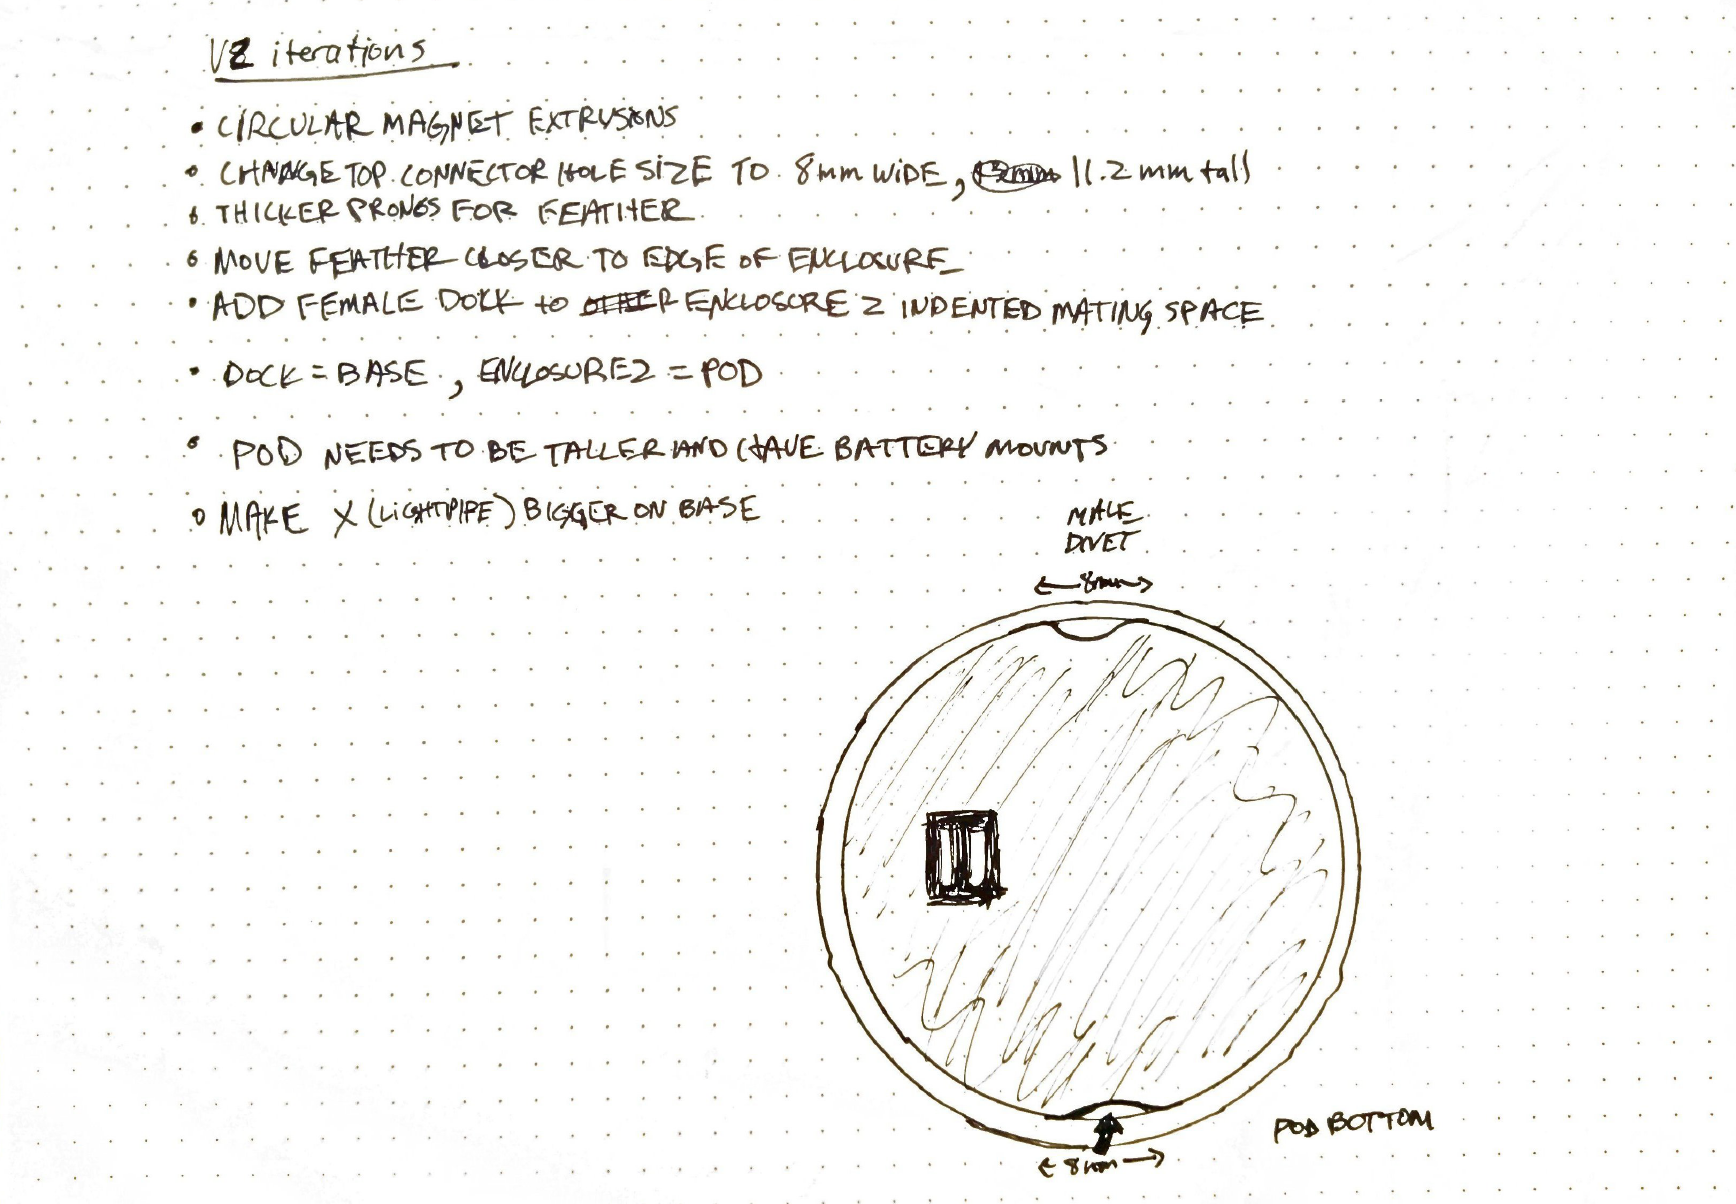 V2 iterations
• CIRCULAR MAGNET EXTRUSIONS
• CHANGE TOP CONNECTOR HOLE SIZE TO 8mm WIDE, 11.2 mm tall
• THICKER PRONGS FOR FEATHER
• MOVE FEATHER CLOSER TO EDGE OF ENCLOSURE
• ADD FEMALE DOCK to ENCLOSURE 2 INDENTED MATING SPACE
• DOCK = BASE, ENCLOSURE2 = POD
• POD NEEDS TO BE TALLER AND HAVE BATTERY MOUNTS
• MAKE X (LIGHTPIPE) BIGGER ON BASE
MALE
DIVET
8mm
POD BOTTOM
8mm